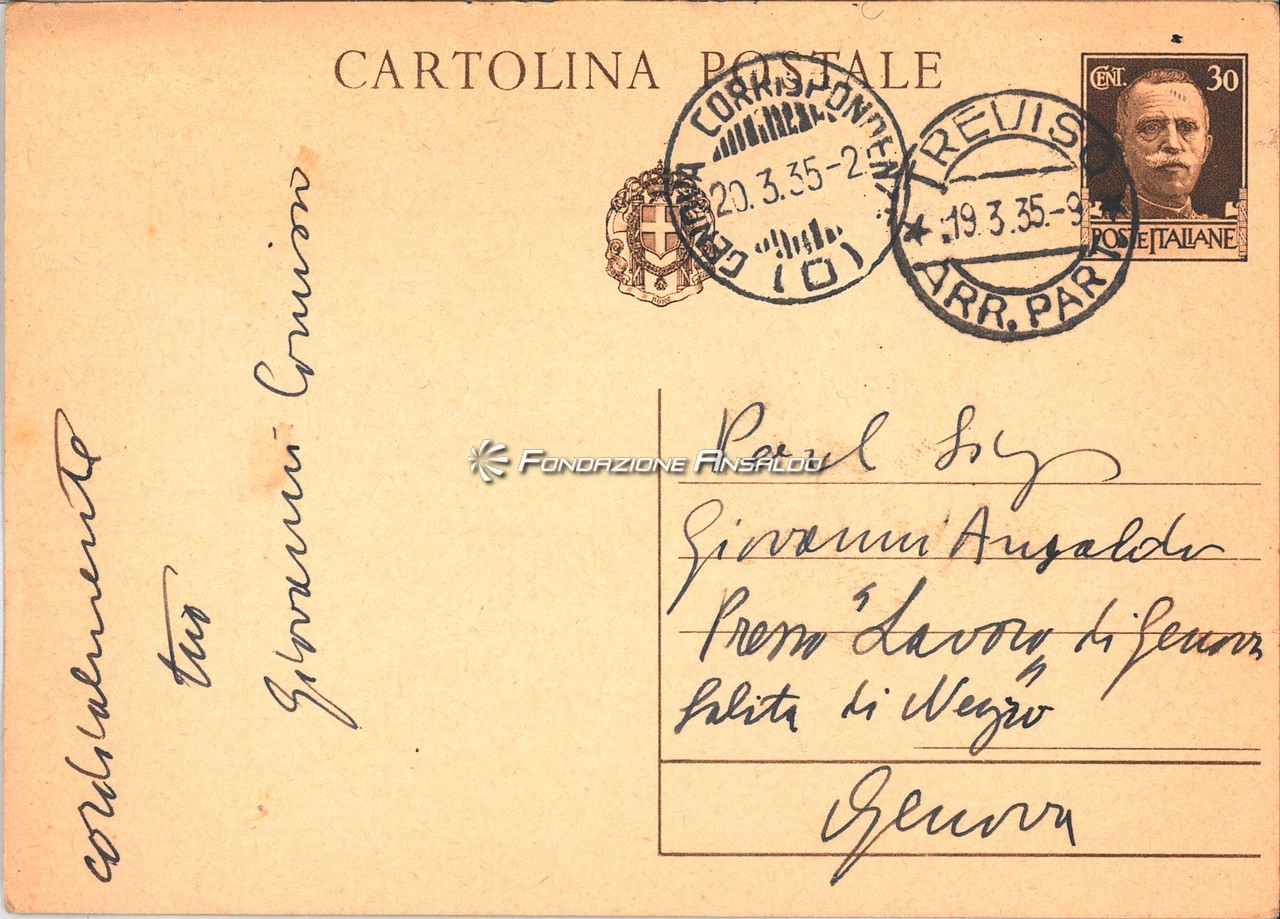 CARTOLINA POSTALE
CENT. 30
POSTE ITALIANE
GENOVA CORRISPONDENZ
20.3.35-2
(D)
TREVISO
19.3.35.-9
ARR. PAR
FONDAZIONE ANSALDO
cordialmente
tuo
Giovanni Comisso
Sig
Giovanni Ansaldo
Presso "Lavoro" di Genova
Salita di Negro
Genova